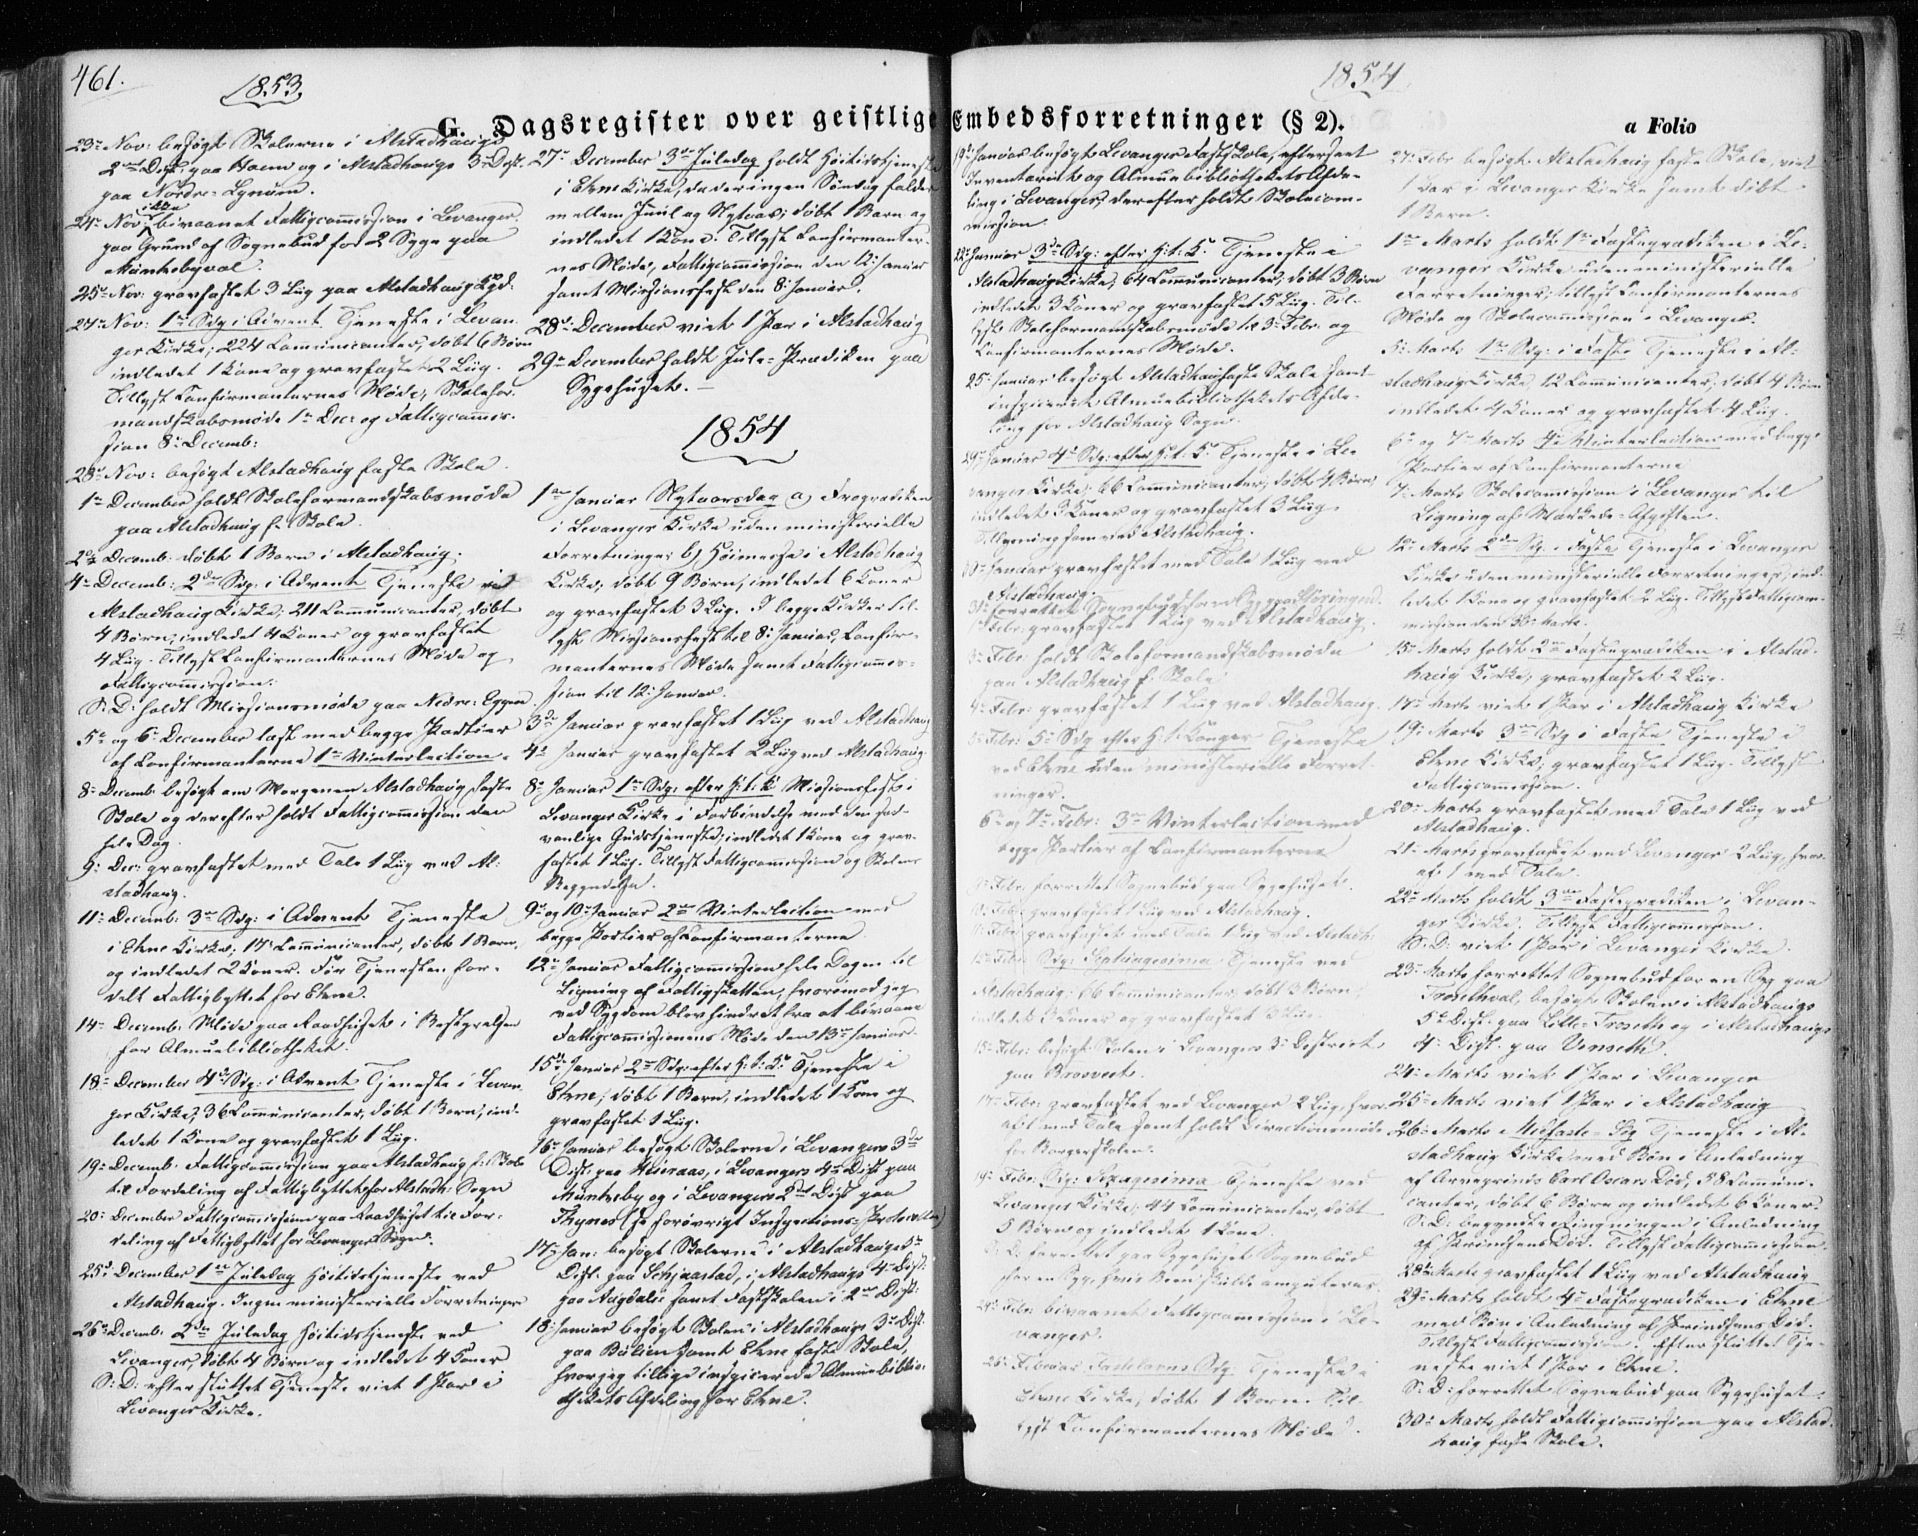 461.
1853.
G. Dagsregister over geistlige Embedsforretninger (§ 2).
1854
a Folio
23de Nov: besøgt Skolerne i Alstadhaugs
2den Distr: paa Hoem og i Alstadhaugs 3de Distr.
paa Nordre-Lynum.
24de Nov: bivaanet Fattigcommission i Levanger
paa Grund af Sognebud for 2 Syge paa
25de Nov: gravfæstet 3 Liig paa Alstadhaug
27de Nov: 1ste Sdg: i Advent Tjeneste i Levan-
ger Kirke; 224 Communicanter, døbt 6 Børn
indledet 1 Kone og gravfæstet 2 Liig.
Tillyst Confirmanternes Møde, Skolefor-
mandskabsmøde 1ste Dec: og Fattigcommis-
sion 8de Decemb:
28de Nov: besøgt Alstadhaug faste Skole.
1ste December holdt Skoleformandskabsmøde
paa Alstadhaug f. Skole.
2den Decemb. døbt 1 Barn i Alstadhaug.
4de Decemb: 2den Sdg: i Advent Tjeneste ved
Alstadhaug Kirke; 211 Communicanter, døbt
4 Børn, indledet 4 Koner og gravfæstet
4 Liig. Tillyst Confirmanternes Møde og
Fattigcommission.
S: D: holdt Missionsmøde paa Nedre-Eggen
5te og 6te December læst med begge Partier
af Confirmanterne 1ste Winterlection.
8de Decemb: besøgt om Morgenen Alstadhaug faste
Skole og derefter holdt Fattigcommission den
hele Dag.
9de Dec: gravfæstet med Tale 1 Liig ved Al-
stadhaug.
11te Decemb: 3die Sdg: i Advent Tjeneste
i Ekne Kirke; 17 Communicanter, døbt 1 Barn,
og indledet 2 Koner. Før Tjenesten for-
delt Fattigbyttet for Ekne.
14de Decemb: Møde paa Raadhuset i Bestyrelsen
for Almuebibliotheket.
18de December 4de Sdg: i Advent Tjeneste i Levan-
ger Kirke; 36 Communicanter, døbt 1 Barn, ind-
ledet 1 Kone og gravfæstet 1 Liig.
19de Decemb. Fattigcommission paa Alstadhaug f: Skole
til Fordeling af Fattigbyttet for Alstadh: Sogn
20de December Fattigcommission paa Raadhuset til For-
deling af Fattigbyttet for Levangers Sogn.
25de December 1ste Juledag Høitidstjeneste ved
Alstadhaug. Ingen ministerielle Forretninger
26de Decemb: 2den Juledag Høitidstjeneste ved
Levanger, døbt 4 Børn og indledet 4 Koner
S: D: efter sluttet Tjeneste viet 1 Par i
Levanger Kirke.
27de December 3die Juledag holdt Høitidstjeneste
i Ekne Kirke, da der ingen Søndag falder
mellem Juul og Nytaar; døbt 1 Barn og
indledet 1 Kone. Tillyst Confirmanter-
nes Møde, Fattigcommission den 12te Januar
samt Missionsfest den 8de Januar.
28de December viet 1 Par i Alstadhaug
29de December holdt Jule-Prædiken paa
Sygehuset. —
1854
1ste Januar Nytaarsdag a) Froprædiken
i Levanger Kirke uden ministerielle
Forretninger b) Høimesse i Alstadhaug
Kirke; døbt 9 Børn, indledet 6 Koner
og gravfæstet 3 Liig. I begge Kirker til-
lyst Missionsfest til 8de Januar, Confir-
manternes Møde samt Fattigcommis-
sion til 12te Januar.
3die Januar gravfæstet 1 Liig ved Alstadhaug
4de Januar gravfæstet 2 Liig ved Alstadhaug
8de Januar 1ste Sdg: efter H: t: K: Missionsfest i
Levanger Kirke i Forbindelse med den sæd-
vanlige Gudstjeneste; indledet 1 Kone og grav-
fæstet 1 Liig. Tillyst Fattigcommission og Skolens
Begyndelse.
9de og 10de Januar 2den Winterlection med
begge Partier af Confirmanterne
12te Januar Fattigcommission hele Dagen til
Ligning af Fattigskatten, hvorimod jeg
ved Sygdom blev hindret fra at bivaane
Fattigcommissionens Møde den 13de Januar.
15de Januar 2den Sdg: efter H: t: K: Tjeneste i
Ekne; døbt 1 Barn, indledet 1 Kone og
gravfæstet 1 Liig.
16de Januar besøgt Skolerne i Levangers 3die
Distr: paa Heieraas, i Levangers 4de Distr paa
Munkeby og i Levangers 2det Distr paa
Thynes (se forøvrigt Inspections-Protocollen)
17de Jan: besøgt Skolerne i Alstadhaugs 5te
Distr. paa Schjaastad, i Alstadhaugs 4de Distr:
paa Augdalis samt Fastskolen i 2de Distr:
18de Januar besøgt Skolen i Alstadhaugs 3die Distr:
paa Bülien samt Ekne faste Skole,
hvor jeg tillige inspicerede Almuebiblio-
thekets Afdeling for Ekne.
19de Januar besøgt Levangers Fastskole, efterseet
Inventariet og Almuebibliothekets Afde-
ling i Levanger; derefter holdt Skolecom-
mission.
22de Januar 3die Sdg: efter H: t: K: Tjeneste i
Alstadhaug Kirke; 64 Communicanter; døbt 3 Børn
indledet 3 Koner og gravfæstet 5 Liig. Til-
lyst Skoleformandskabsmøde til 3die Febr. og
Confirmanternes Møde.
25de Januar besøgt Alstadhaug faste Skole samt
inspiceret Almuebibliothekets Afde-
ling for Alstadhaug Sogn.
29de Januar 4de Sdg: efter H: t: K: Tjeneste i Le-
vanger Kirke; 66 Communicanter; døbt 4 Børn,
indledet 3 Koner og gravfæstet 3 Liig.
Tillysning som ved Alstadhaug.
30te Januar gravfæstet med Tale 1 Liig ved
Alstadhaug.
31te forrettet Sognebud
1ste Febr: gravfæstet 1 Liig ved Alstadhaug.
3die Febr: holdt Skoleformandskabsmøde
paa Alstadhaug f: Skole
4de Febr: gravfæstet 1 Liig ved Alstadhaug.
5te Febr: 5te Sdg efter H: t: Konger Tjeneste
ved Ekne uden ministerielle Forret-
ninger.
6te og 7de Febr: 3die Winterlection med
begge Partier af Confirmanterne
Febr: forrettet Sognebud paa Sygehuset.
Febr: gravfæstet 1 Liig ved Alstadhaug.
Febr: gravfæstet med Tale 1 Liig ved Alstadh.
12te Febr: Sdg: Septuagesima Tjeneste ved
Alstadhaug; 66 Communicanter, døbt 3 Børn,
indledet 3 Koner og gravfæstet Liig.
15de Febr: besøgt Skolen i Levangers 3die District
paa
17de Febr: gravfæstet ved Levanger 2 Liig, hvor-
af 1 med Tale samt holdt Directionsmøde
for Borgerskolen.
19de Febr: Sdg: Sexagesima Tjeneste ved
Levanger Kirke; 44 Communicanter, døbt
5 Børn og indledet 1 Kone.
S: D: forrettet paa Sygehuset Sognebud
for en Syg, hvis Been skulde amputeres.
24de Febr: bivaanet Fattigcommission i Le-
vanger.
26de Februar Fastelavns Sdg: Tjeneste i
Ekne Kirke, døbt 1 Barn. Til-
lyst Confirmanternes Møde.
27de Febr besøgt Alstadhaug faste Skole, viet
1 Par i Levanger Kirke samt døbt
1 Barn.
1ste Marts holdt 1ste Fasteprædiken i Le-
vanger Kirke uden ministerielle
Forretninger; tillyst Confirmanternes
Møde og Skolecommission i Levanger.
5te Marts 1ste Sdg: i Faste Tjeneste i Al-
stadhaug Kirke, 12 Communicanter; døbt 4 Børn
indledet 4 Koner og gravfæstet 4 Liig.
6te og 7de Marts 4de Winterlection med begge
Partier af Confirmanterne
7de Marts Skolecommission i Levanger til
Ligning af Markeds-Afgiften.
12te Marts 2den Sdg. i Faste Tjeneste i Levanger
Kirke uden ministerielle Forretninger; ind-
ledet 1 Kone og gravfæstet 2 Liig. Tillyst Fattigcom-
mission den 30te Marts.
15de Marts holdt 2den Fasteprædiken i Alstad-
haug Kirke, gravfæstet 2 Liig.
17de Marts viet 1 Par i Alstadhaug Kirke
19de Marts 3die Sdg i Faste Tjeneste i
Ekne Kirke; gravfæstet 1 Liig. Tillyst
Fattigcommission.
20de Marts gravfæstet med Tale 1 Liig ved
Alstadhaug.
21de Marts gravfæstet ved Levanger 2 Liig, hvor-
af 1 med Tale.
22de Marts holdt 3die Fasteprædiken i Levan-
ger Kirke. Tillyst Fattigcommission.
S: D: viet 1 Par i Levanger Kirke.
23de Marts forrettet Sognebud for en Syg paa
Trosethval, besøgt Skolen i Alstadhaugs
5te Distr: paa Lille-Troseth og i Alstadhaugs
4de Distr. paa Vensetti.
24de Marts viet 1 Par i Levanger
25de Marts viet 1 Par i Alstadhaug
26de Marts Midfaste-Sdg Tjeneste i Al-
stadhaug Kirke med Bøn i Anledning
af Arveprinds Carl Oscars Død; 58 Communi-
canter, døbt 6 Børn og indledet 6 Koner.
S: D: begyndte Ringningen i Anledning
af Prindsens Død. Tillyst Fattigcommission.
28de Marts gravfæstet 1 Liig ved Alstadhaug
29de Marts holdt 4de Fasteprædiken i Ekne
med Bøn i Anledning af Prindsens Død.
Tillyst Fattigcommission. Efter sluttet Tje-
neste viet 1 Par i Ekne.
S: D: forrettet Sognebud paa Sygehuset.
30te Marts holdt Fattigcommission paa Alstad-
haug faste Skole.